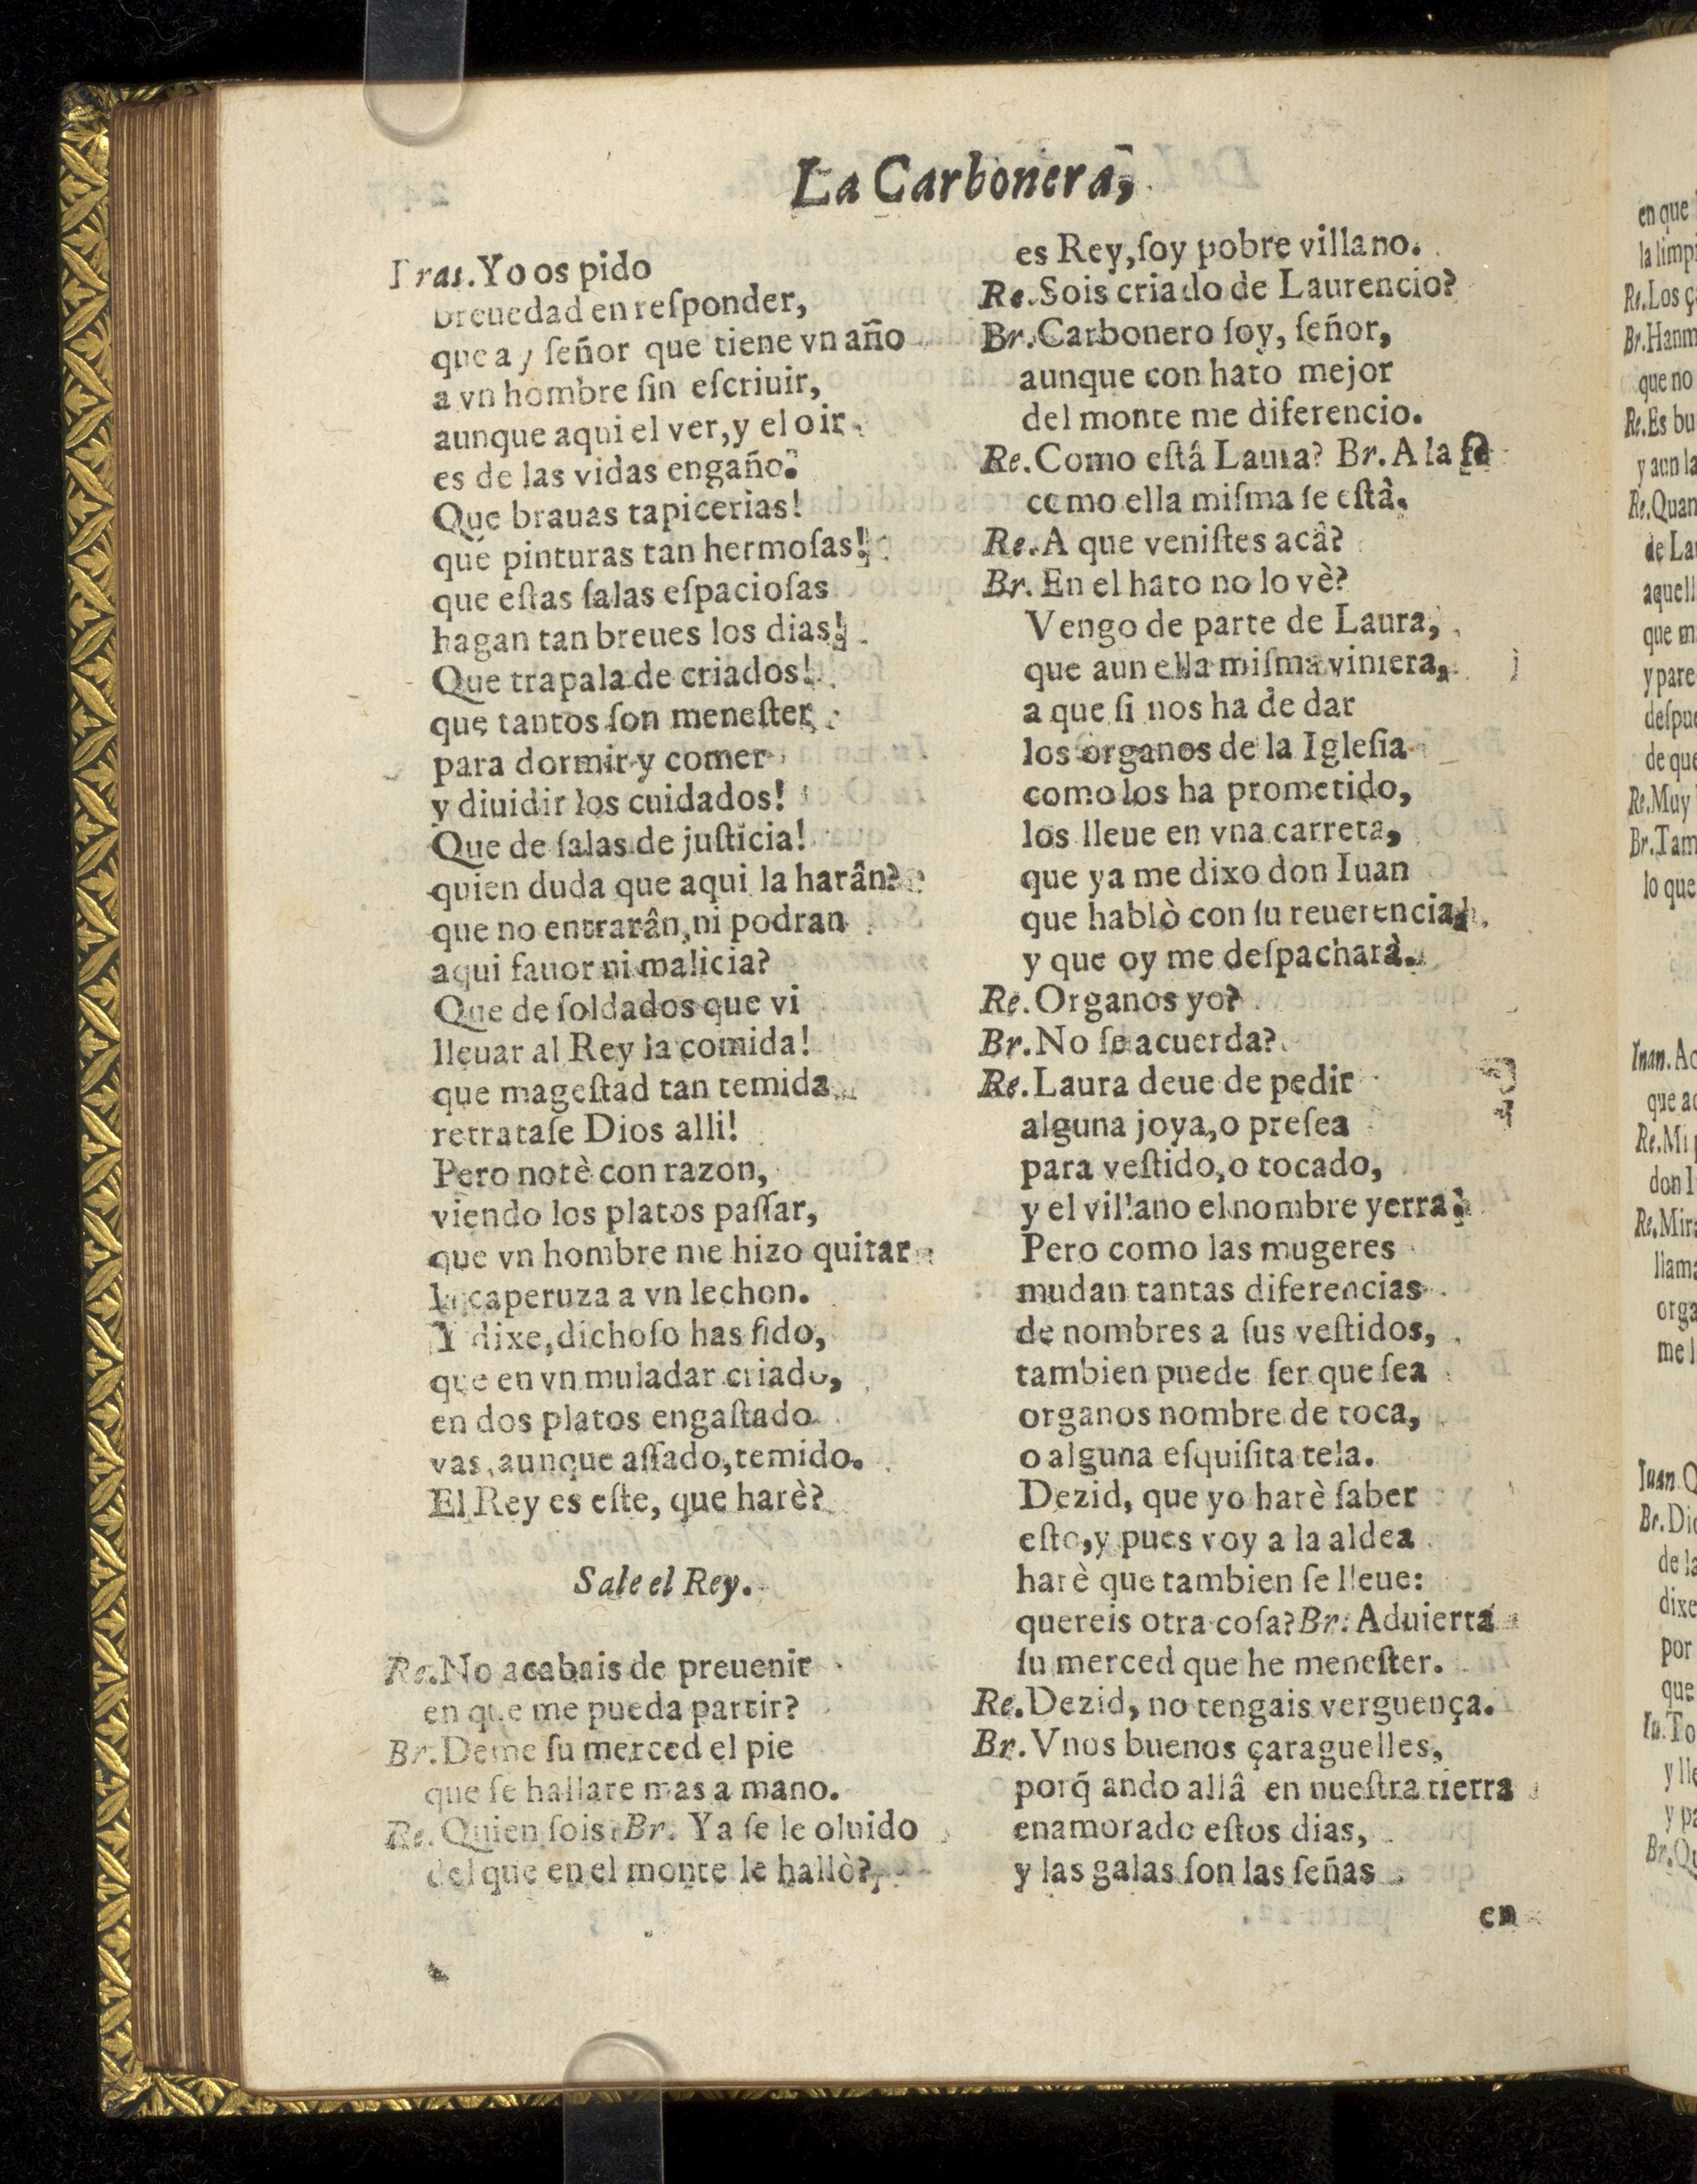 La Carbonera,
Bras. Yo os pido
breuedad en reſponder,
que ay ſeñor que tiene vn año
a vn hombre ſin eſcriuir,
aunque aqui el ver, y el oir
es de las vidas engaño.
Que brauas tapicerias!
que pinturas tan hermoſas!
que eſtas ſalas eſpacioſas
hagan tan breues los dias!
Que trapala de criados!
que tantos ſon meneſter
para dormir y comer
y diuidir los cuidados!
Que de ſalas de juſticia!
quien duda que aqui la harân?
que no entrarân, ni podran
aqui fauor ni malicia?
Que de ſoldados que vi
lleuar al Rey la comida!
que mageſtad tan temida
retrataſe Dios alli!
Pero notè con razon,
viendo los platos paſſar,
que vn hombre me hizo quitar
la caperuza a vn lechon.
Y dixe, dichoſo has ſido,
que en vn muladar criado,
en dos platos engaſtado
vas, aunque aſſado, temido.
El Rey es eſte, que harè?
Sale el Rey.
Re. No acabais de preuenir
en que me pueda partir?
Br. Deme ſu merced el pie
que ſe hallare mas a mano.
Re. Quien ſois? Br. Ya ſe le oluido
del que en el monte le hallò?
es Rey, ſoy pobre villano.
Re. Sois criado de Laurencio?
Br. Carbonero ſoy, ſeñor,
aunque con hato mejor
del monte me diferencio.
Re. Como eſtâ Laura? Br. A la fe
como ella miſma ſe eſtà.
Re. A que veniſtes acâ?
Br. En el hato no lo vè?
Vengo de parte de Laura,
que aun ella miſma viniera,
a que ſi nos ha de dar
los organos de la Igleſia
como los ha prometido,
los lleue en vna carreta,
que ya me dixo don Iuan
que hablò con ſu reuerencia,
y que oy me deſpacharà.
Re. Organos yo?
Br. No ſe acuerda?
Re. Laura deue de pedir
alguna joya, o preſea
para veſtido, o tocado,
y el villano el nombre yerra.
Pero como las mugeres
mudan tantas diferencias
de nombres a ſus veſtidos,
tambien puede ſer que ſea
organos nombre de toca,
o alguna eſquiſita tela.
Dezid, que yo harè ſaber
eſto, y pues voy a la aldea
harè que tambien ſe lleue:
quereis otra coſa? Br. Aduierta
ſu merced que he meneſter.
Re. Dezid, no tengais verguença.
Br. Vnos buenos çaraguelles,
porq̃ ando allâ en nueſtra tierra
enamorado eſtos dias,
y las galas ſon las ſeñas
en
en que
la limpi
Re. Los ç
Br. Hanm
que no
Re. Es bu
y aun la
Re. Quan
de Lau
aquell
que m
y pare
deſpue
de que
Re. Muy
Br. Tam
lo que
Iuan. Ac
que ac
Re. Mi
don I
Re. Mira
llama
orga
me l
Iuan Q
Br. Dic
de la
dixe
por
que
Iu. To
y lle
y pa
Br. Qu